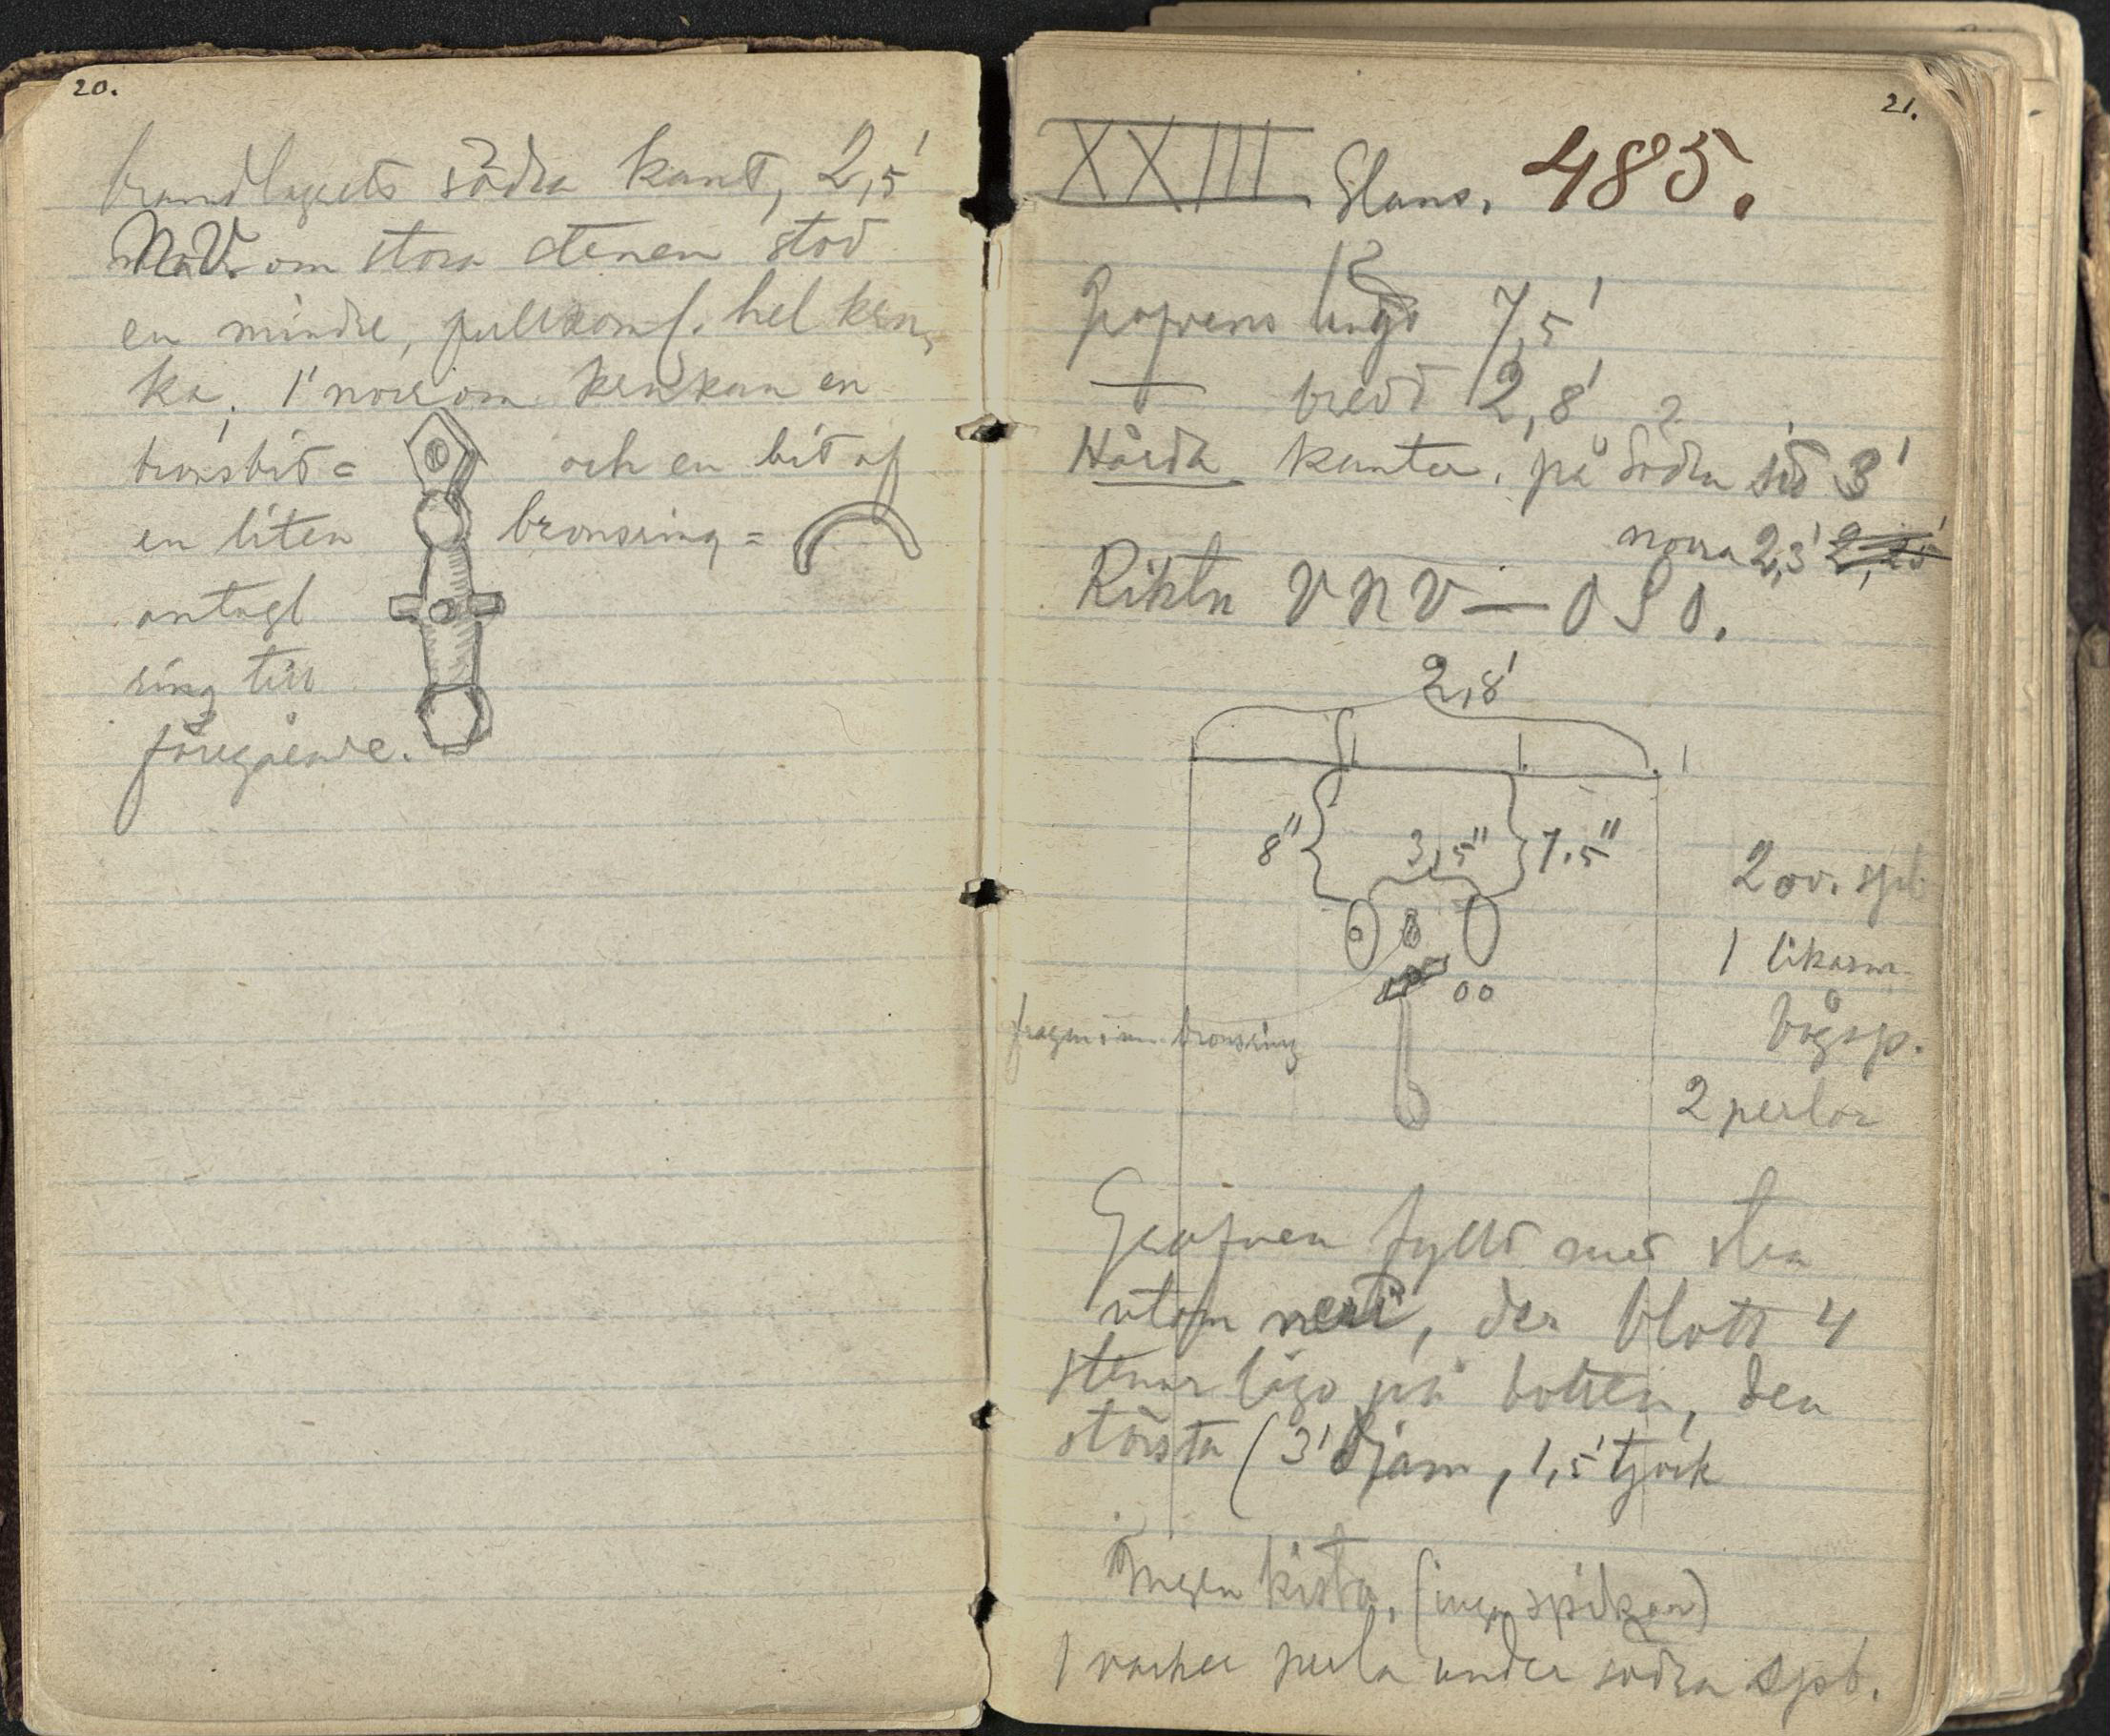 20.
brandlagrets södra kant, 2,5'
NaV. om stora stenen stod
en mindre, fullkoml. hel kru,
ka. 1' norrom krukan en
bronsbit = och en bit af
en liten bronsring =
antagl
ring till
föregående.
21.
XXIII Hans. 485.
Grafvens längd 7,5'
— bredd 2,8'
Hårda kanter, på södra sid 3'
norra 2,3' 2,25'
Riktn VNV — OSO.
2,8'
8" 3,5" 7,5"
2 ov. spb
1 likarm
bågsp.
2 perlor
fragm. bronsring
Grafven fylld med sten
utom vest, der blott 4
stenar lågo på botten, den
största (3' djam, 1,5' tjock
Ingen kista. (inga spikar)
1 vacker perla under södra spb.